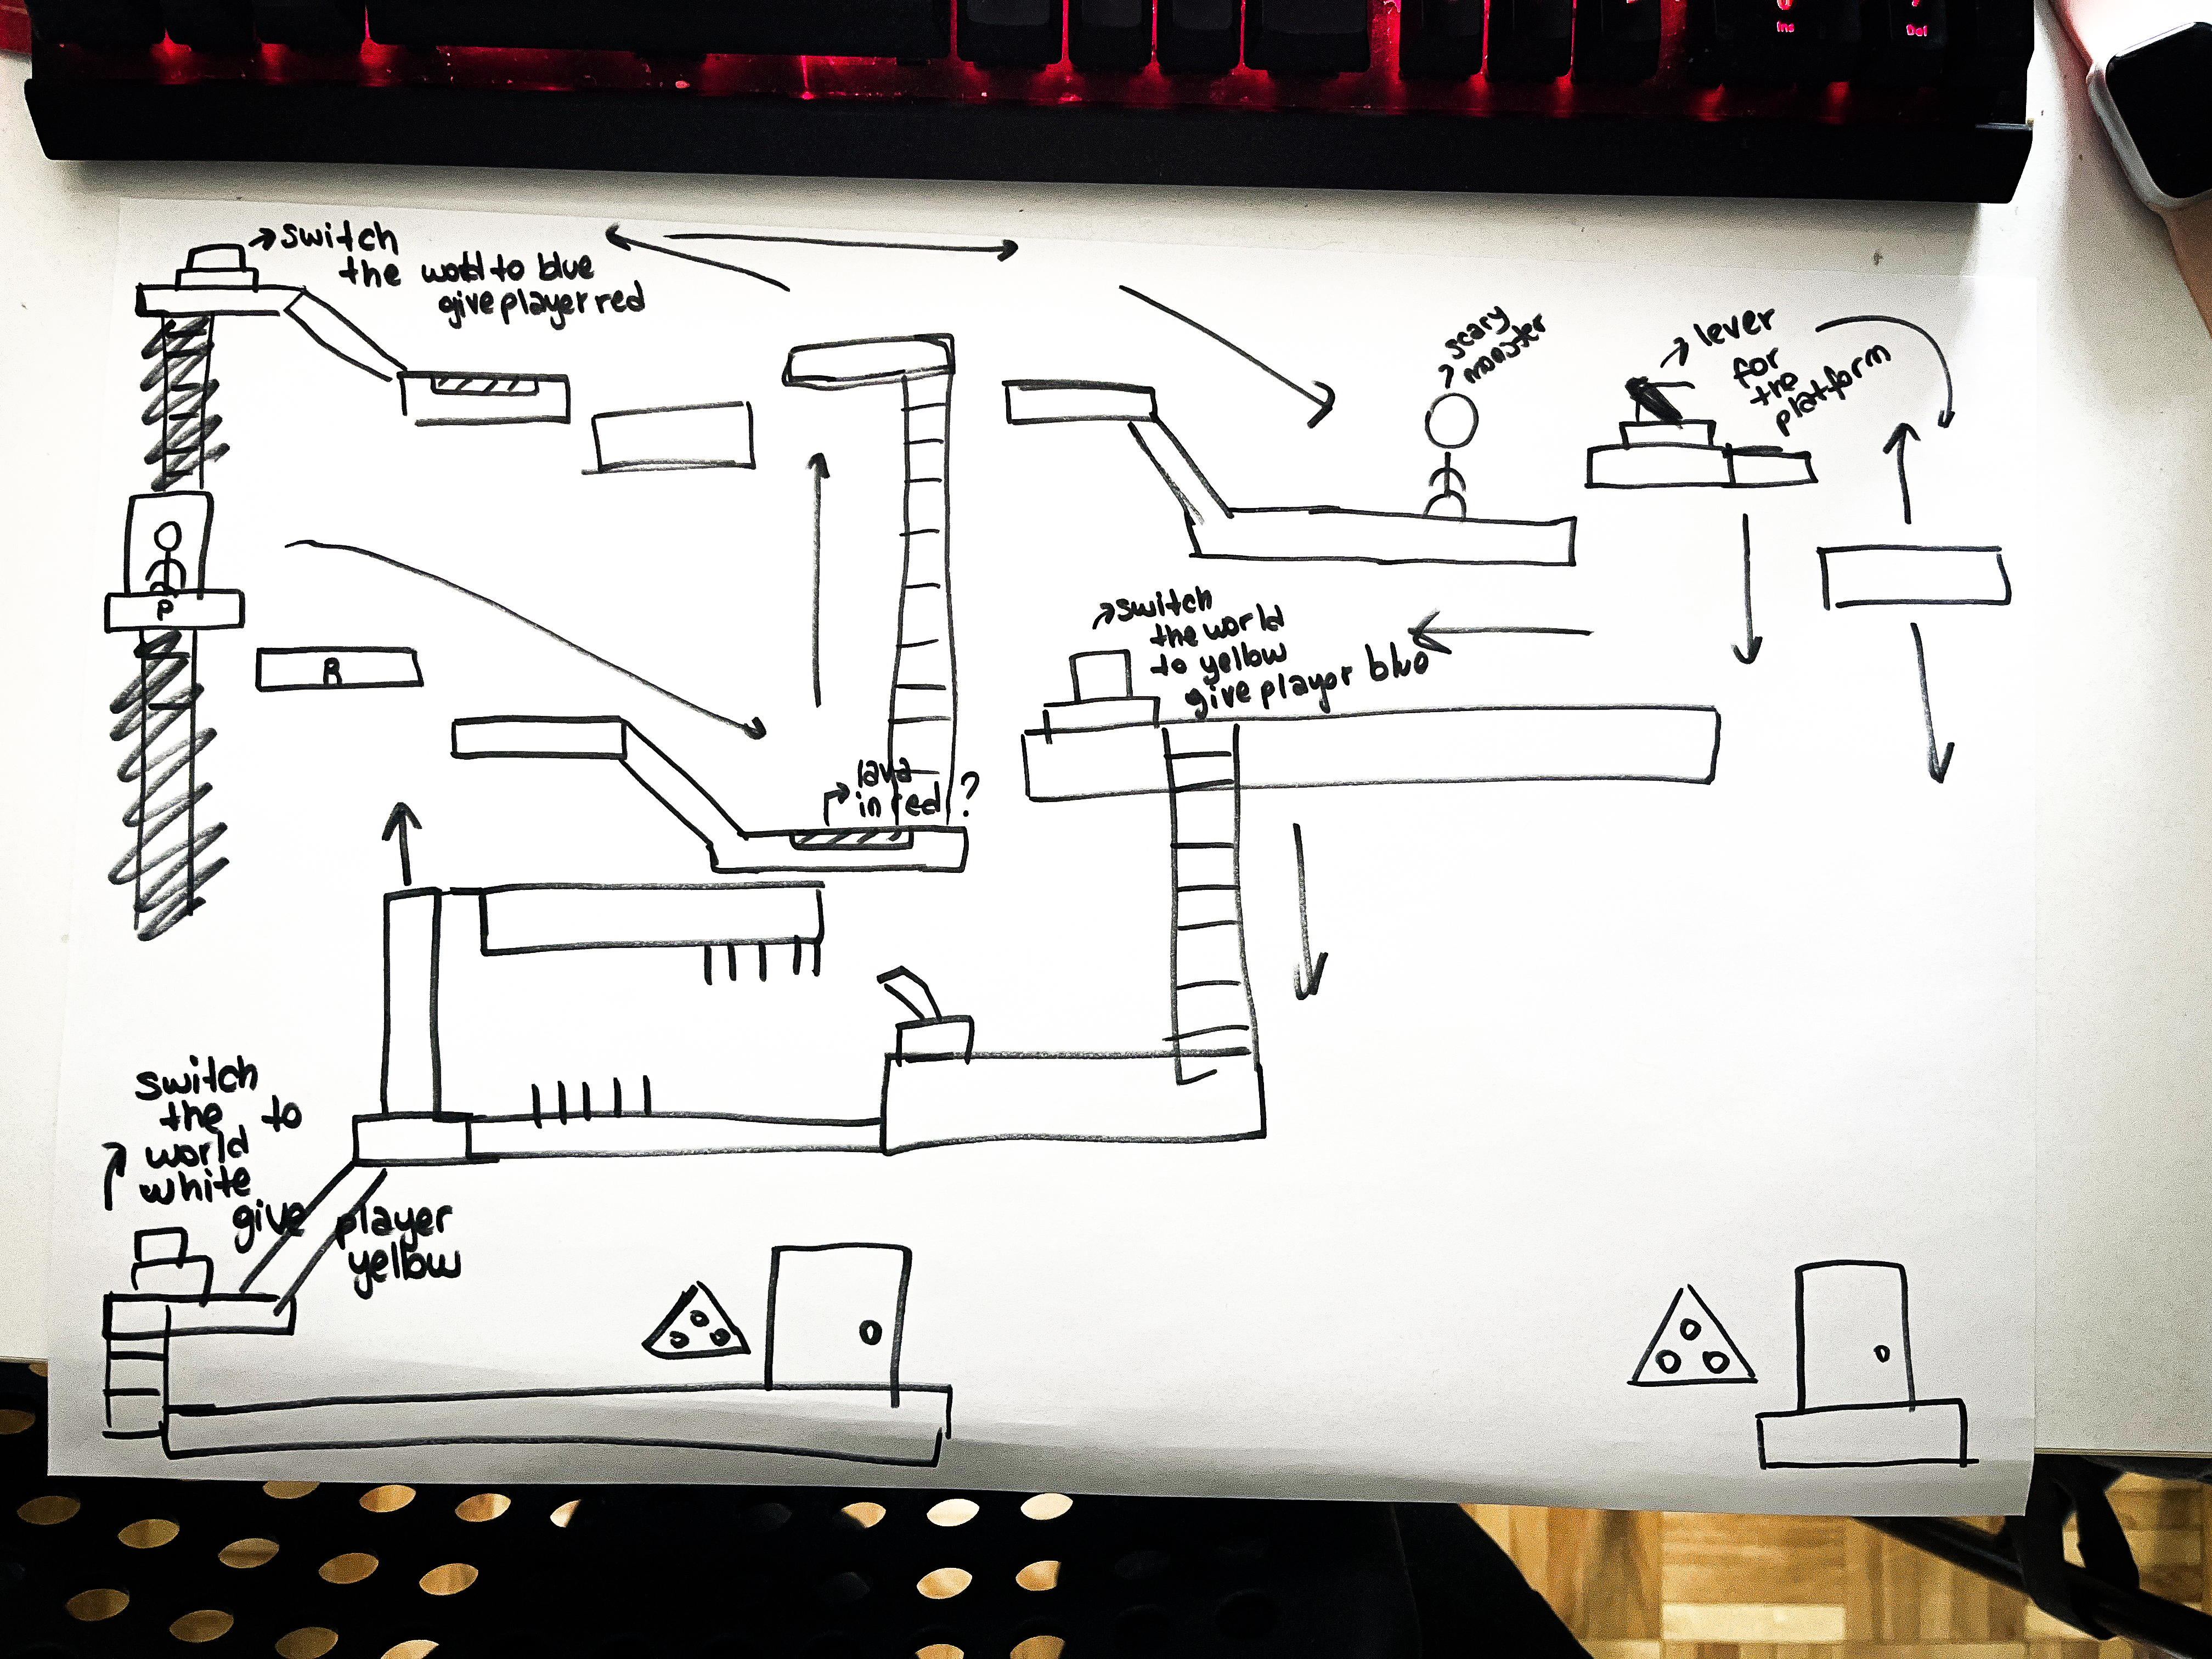 Ins
Del
switch
the world to blue
give player red
scary
monster
lever
for
the
platform
P
R
switch
the world
to yellow
give player blue
lava
in red ?
switch
the to
world
white
give player
yellow